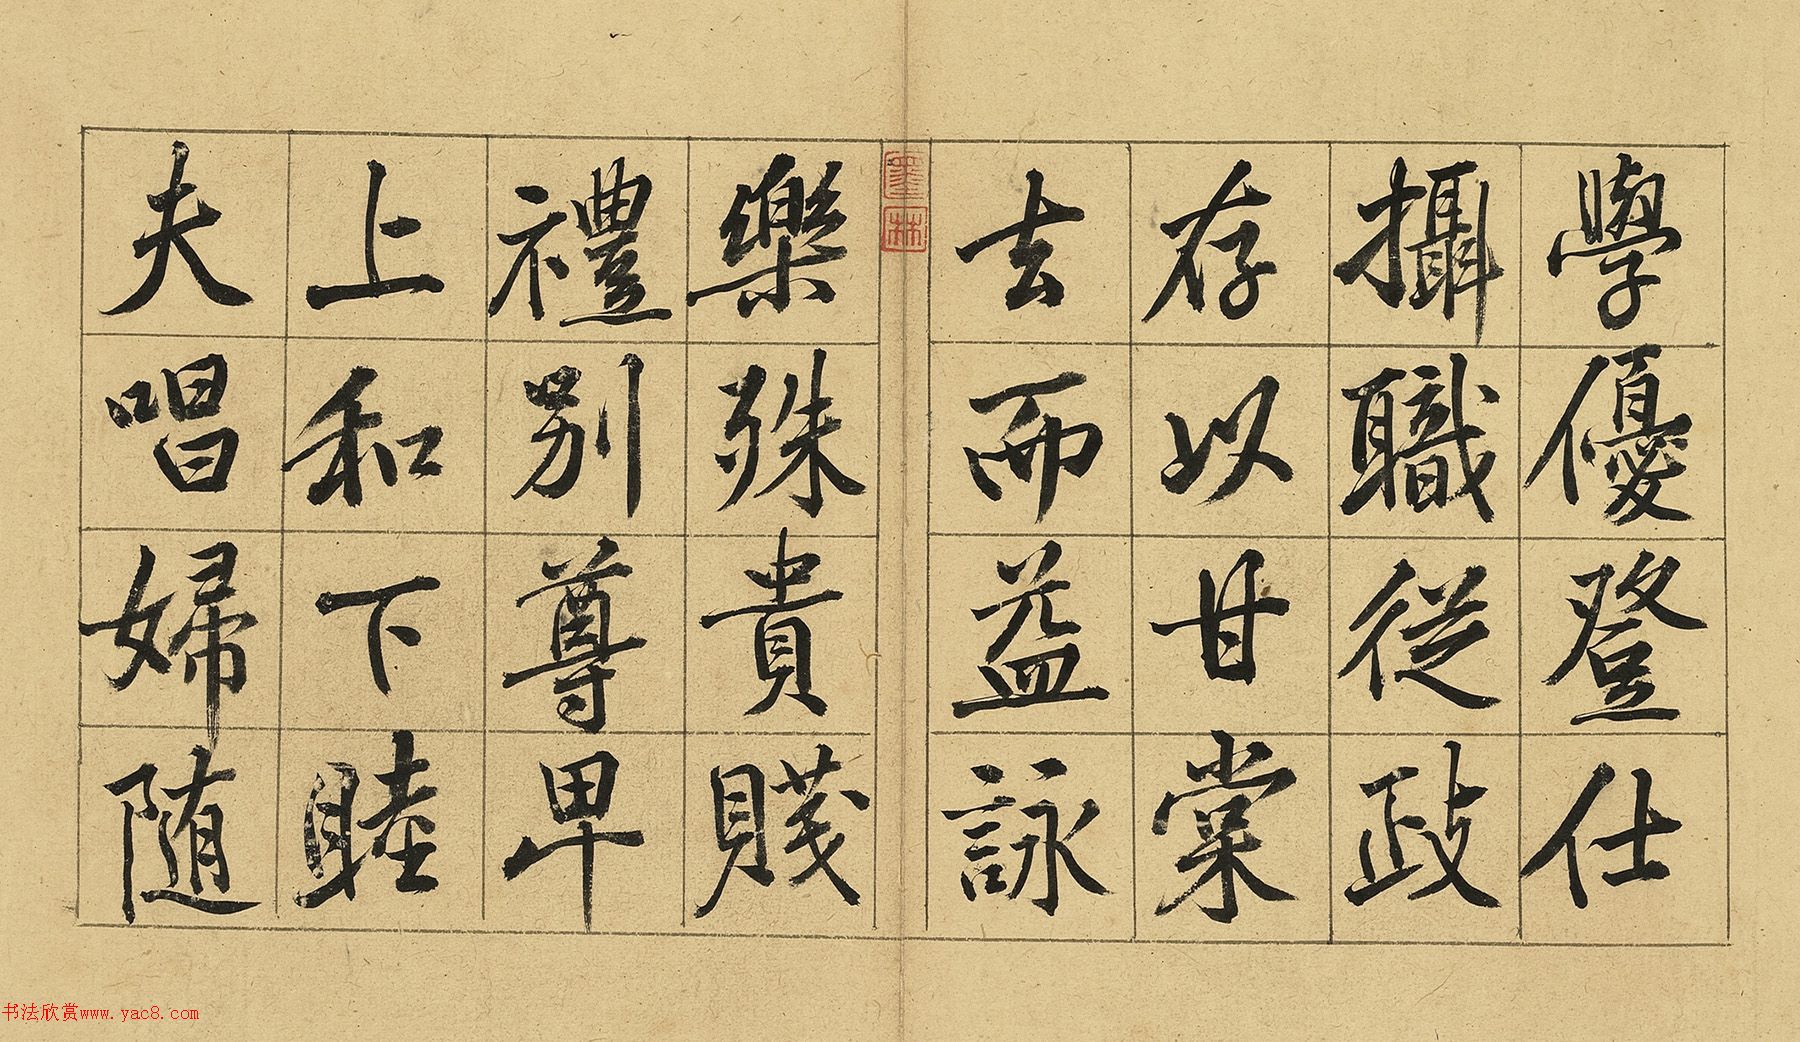 學優登仕
攝職從政
存以甘棠
去而益詠
樂殊貴賤
禮別尊卑
上和下睦
夫唱婦随
墨林
书法欣赏www.yac8.com